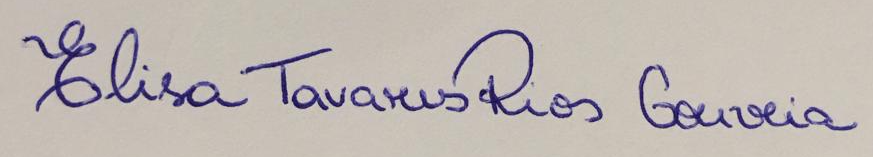 Elisa Tavares Rios Gouveia